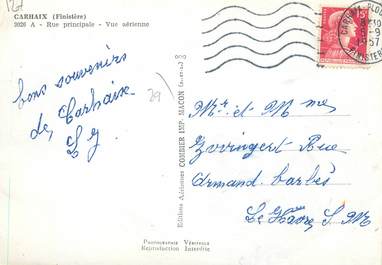 127
CARHAIX (Finistère)
3026 A - Rue principale - Vue aérienne
bons souvenirs
de Carhaix
29
Editions Aériennes COMBIER IMP. MACON
CARHAIX
1957
FINISTERE
Mr et Mme
Zwingert Rue
Armand barbès
Le Havre S. M
PHOTOGRAPHIE VÉRITABLE
REPRODUCTION INTERDITE